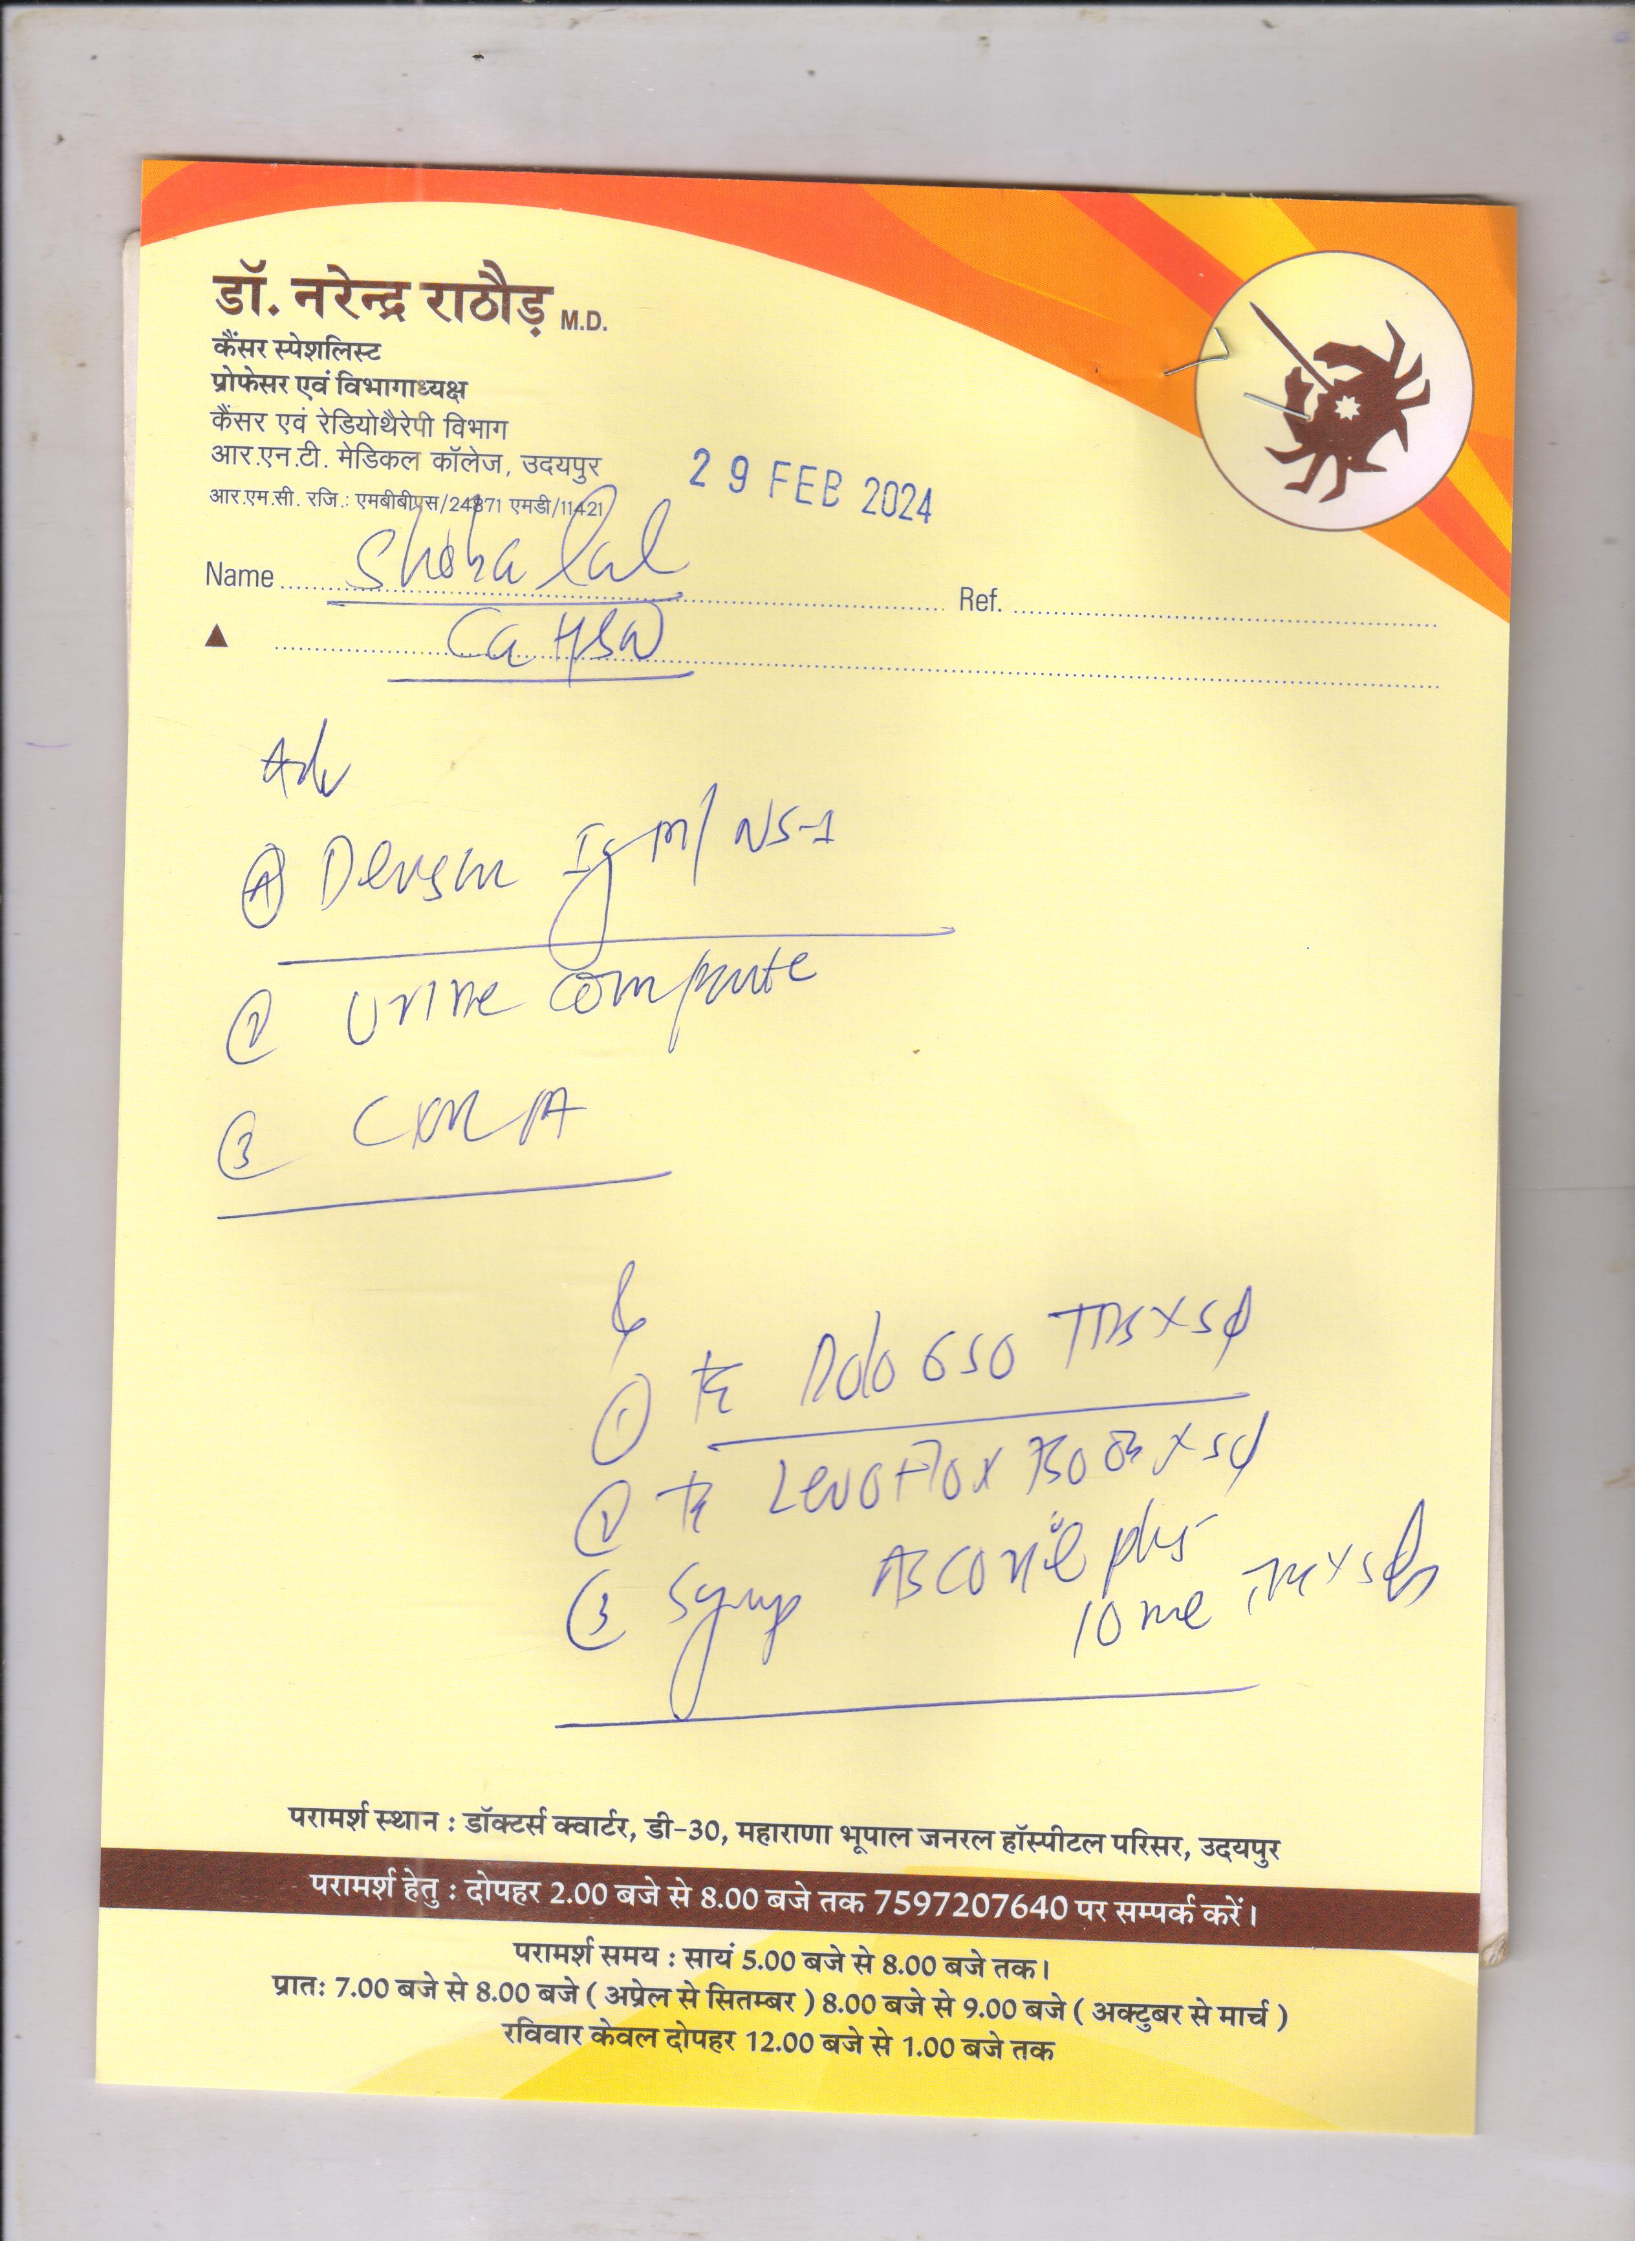 डॉ. नरेन्द्र राठौड़ M.D.
कैंसर स्पेशलिस्ट
प्रोफेसर एवं विभागाध्यक्ष
कैंसर एवं रेडियोथैरेपी विभाग
आर.एन.टी. मेडिकल कॉलेज, उदयपुर
आर.एम.सी. रजि.: एमबीबीएस/24871 एमडी/11421
29 FEB 2024
Name Shoba lal Ref.
Ca
Adv
Dengue IgM/ NS-1
② Urine complete
③ CXR PA
① Dolo 650 TDS x 5d
② Levoflox 750 OD x 5d
③ Syrup Ascoril plus
10 ml x 5d
परामर्श स्थान : डॉक्टर्स क्वार्टर, डी-30, महाराणा भूपाल जनरल हॉस्पीटल परिसर, उदयपुर
परामर्श हेतु : दोपहर 2.00 बजे से 8.00 बजे तक 7597207640 पर सम्पर्क करें।
परामर्श समय : सायं 5.00 बजे से 8.00 बजे तक।
प्रातः 7.00 बजे से 8.00 बजे ( अप्रेल से सितम्बर ) 8.00 बजे से 9.00 बजे ( अक्टुबर से मार्च )
रविवार केवल दोपहर 12.00 बजे से 1.00 बजे तक